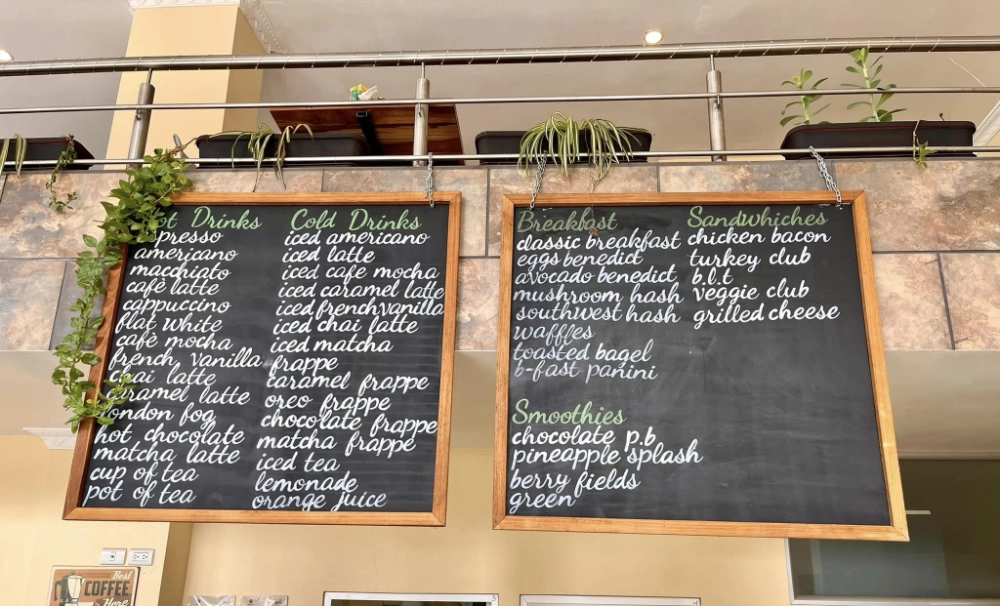 Hot Drinks
espresso
americano
macchiato
cafe latte
cappuccino
flat white
cafe mocha
french vanilla
chai latte
caramel latte
london fog
hot chocolate
matcha latte
cup of tea
pot of tea
Cold Drinks
iced americano
iced latte
iced cafe mocha
iced caramel latte
iced french vanilla
iced chai latte
iced matcha
frappe
caramel frappe
oreo frappe
chocolate frappe
matcha frappe
iced tea
lemonade
orange juice
Breakfast
classic breakfast
eggs benedict
avocado benedict
mushroom hash
southwest hash
waffles
toasted bagel
b-fast panini
Smoothies
chocolate p.b
pineapple splash
berry fields
green
Sandwhiches
chicken bacon
turkey club
b.l.t
veggie club
grilled cheese
Best
COFFEE
Here